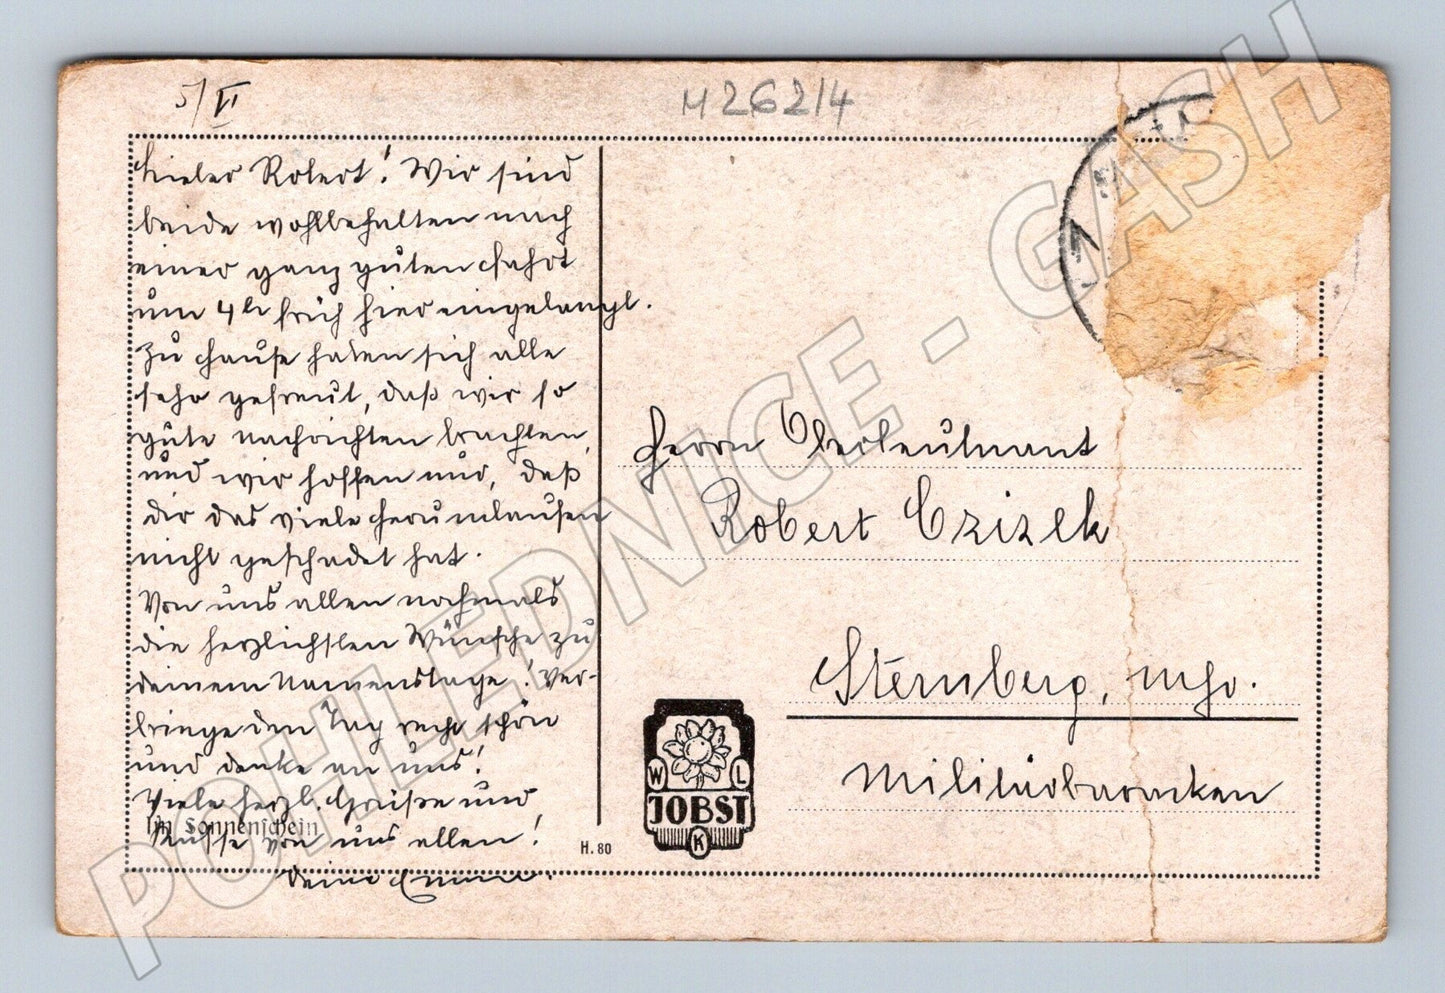 5/VI
M 262/4
Lieber Robert! Wir sind
beide wohlbehalten nach
einer ganz guten Fahrt
um 4h früh hier eingelangt.
Zu Hause haben sich alle
sehr gefreut, daß wir so
gute Nachrichten brachten,
und wir hoffen nur, daß
dir das viele Herumlaufen
nicht geschadet hat.
Von uns allen nochmals
die herzlichsten Wünsche zu
deinem Namenstage! Ver-
bringe den Tag recht schön
und denke an uns!
Viele herzl. Grüße und
Im Sonnenschein
Küsse von uns allen!
deine
Herrn Oberleutnant
Robert Czizek
Sternberg,
Militärbaracken
H. 80
W L
JOBST
K
POHLEDNICE - GASH